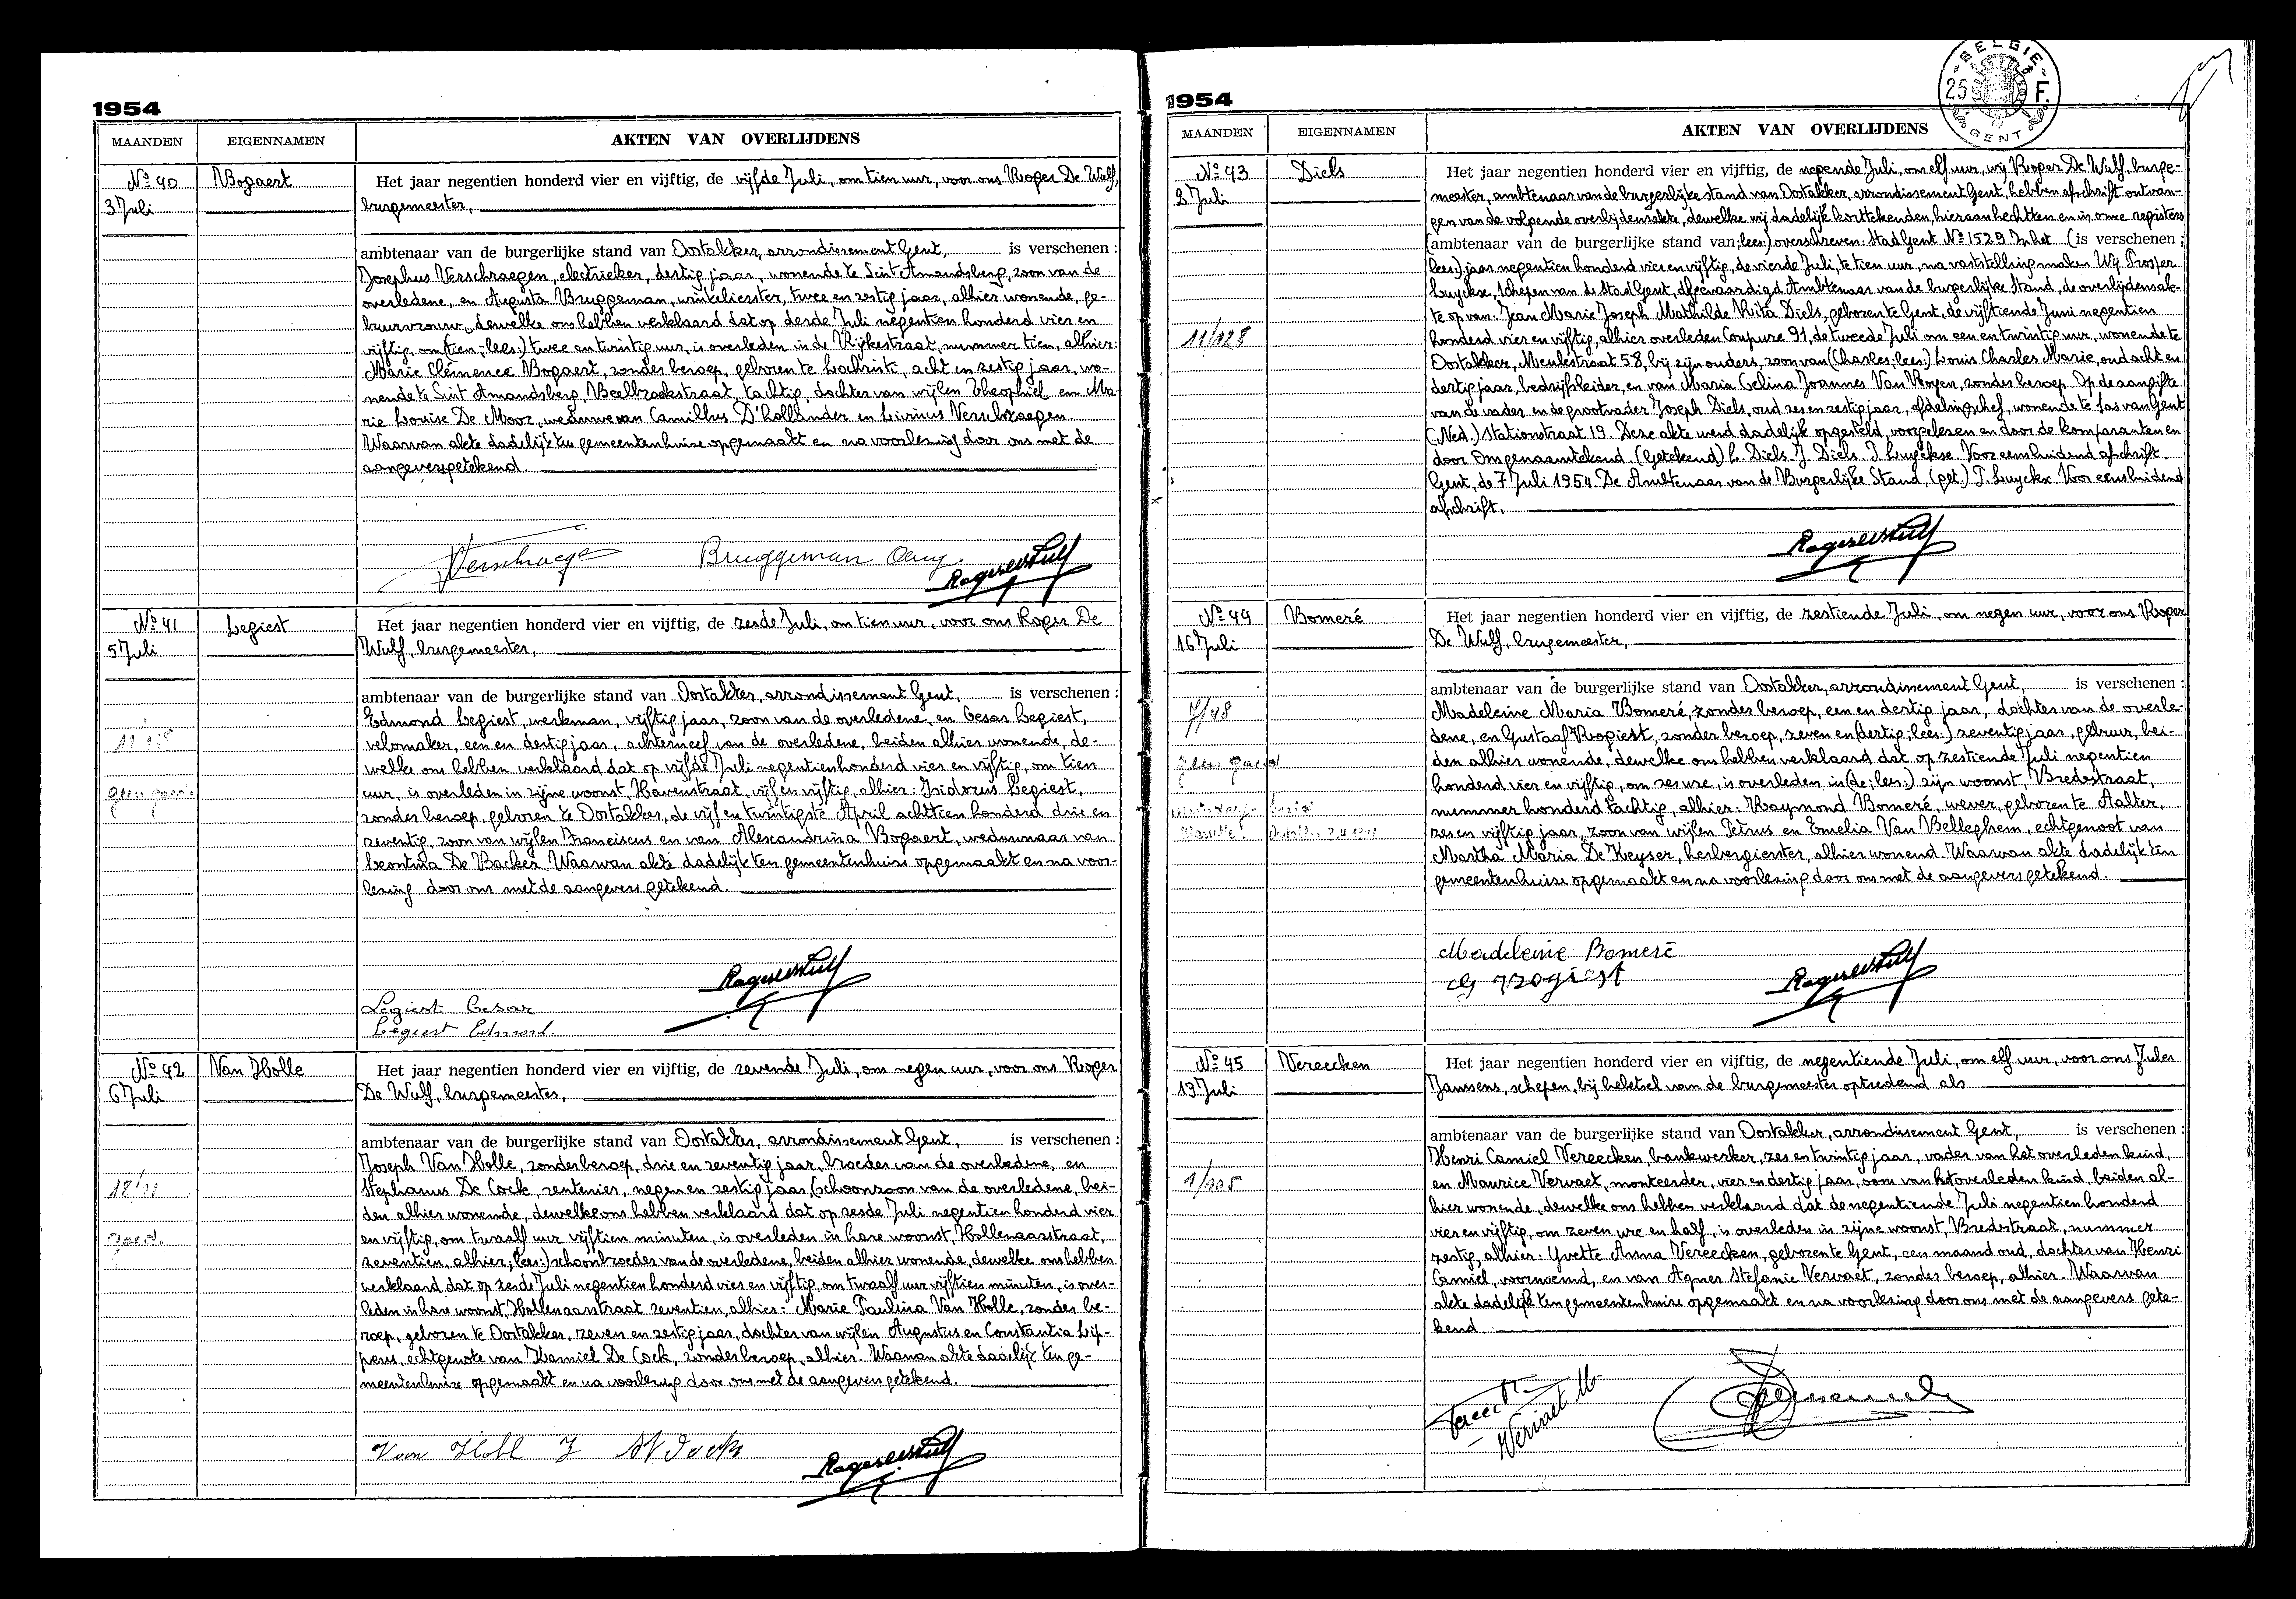 1954
MAANDEN EIGENNAMEN AKTEN VAN OVERLIJDENS
No 40 Bogaert
3 Juli
Het jaar negentien honderd vier en vijftig, de vijfde Juli, om tien uur, voor ons Roger De Wulf,
burgemeester,
ambtenaar van de burgerlijke stand van Oostakker, arrondissement Gent, is verschenen :
Josephus Verschraegen, electrieker, dertig jaar, wonende te Sint Amandsberg, zoon van de
overledene, en Augusta Bruggeman, winkelierster, twee en zestig jaar, alhier wonende, ge-
buurvrouw, dewelke ons hebben verklaard dat op derde Juli negentien honderd vier en
vijftig, om (tien; lees:) twee en twintig uur, is overleden in de Rijkestraat, nummer tien, alhier:
Marie Clémence Bogaert, zonder beroep, geboren te Lochristi, acht en zestig jaar, wo-
nende te Sint Amandsberg, Beelbroekstraat, tachtig, dochter van wijlen Theophiel en Ma-
rie Louise De Moor, weduwe van Camillus D'hollander en Livinus Verschraegen.
Waarvan akte dadelijk ten gemeentenhuize opgemaakt en na voorlezing door ons met de
aangevers getekend.
Verschraege Bruggeman Aug. Roger De Wulf
No 41 Legiest
5 Juli
Het jaar negentien honderd vier en vijftig, de zesde Juli, om tien uur, voor ons Roger De
Wulf, burgemeester,
ambtenaar van de burgerlijke stand van Oostakker, arrondissement Gent, is verschenen :
Edmond Legiest, werkman, vijftig jaar, zoon van de overledene, en Cesar Legiest,
velomaker, een en dertig jaar, achterneef van de overledene, beiden alhier wonende, de-
welke ons hebben verklaard dat op vijfde Juli negentienhonderd vier en vijftig, om tien
uur, is overleden in zijne woonst, Havenstraat, vijf en vijftig, alhier: Isidorus Legiest,
zonder beroep, geboren te Oostakker, de vijf en twintigste April achttien honderd drie en
zeventig, zoon van wijlen Franciscus en van Alexandrina Bogaert, weduwnaar van
Leontina De Backer. Waarvan akte dadelijk ten gemeentenhuize opgemaakt en na voor-
lezing door ons met de aangevers getekend.
Roger De Wulf
Legiest Cesar
Legiest Edmond.
No 42 Van Holle
6 Juli
Het jaar negentien honderd vier en vijftig, de zevende Juli, om negen uur, voor ons Roger
De Wulf, burgemeester,
ambtenaar van de burgerlijke stand van Oostakker, arrondissement Gent, is verschenen :
Joseph Van Holle, zonder beroep, drie en zeventig jaar, broeder van de overledene, en
Stephanus De Cock, rentenier, negen en zestig jaar, (schoonzoon van de overledene, bei-
den alhier wonende, dewelke ons hebben verklaard dat op zesde Juli negentien honderd vier
en vijftig, om twaalf uur vijftien minuten, is overleden in hare woonst, Hollenaarstraat,
zeventien, alhier; lees:) schoonbroeder van de overledene, beiden alhier wonende, dewelke ons hebben
verklaard dat op zesde Juli negentien honderd vier en vijftig, om twaalf uur vijftien minuten, is over-
leden in hare woonst, Hollenaarstraat zeventien, alhier: Marie Paulina Van Holle, zonder be-
roep, geboren te Oostakker, zeven en zestig jaar, dochter van wijlen Augustus en Constantia Lip-
pens, echtgenote van Kamiel De Cock, zonder beroep, alhier. Waarvan akte dadelijk ten ge-
meentenhuize opgemaakt en na voorlezing door ons met de aangevers getekend.
Van Holl J St D Cock Roger De Wulf
1954
BELGIE 25 F. GENT
MAANDEN EIGENNAMEN AKTEN VAN OVERLIJDENS
No 43 Diels
2 Juli
11/128
Het jaar negentien honderd vier en vijftig, de negende Juli, om elf uur, wij Roger De Wulf, burge-
meester, ambtenaar van de burgerlijke stand van Oostakker, arrondissement Gent, hebben afschrift ontvan-
gen van de volgende overlijdensakte, dewelke wij dadelijk korttekenden, hieraan hechtten en in onze registers
(ambtenaar van de burgerlijke stand van; lees:) overschreven: Stad Gent No 1529 In het (is verschenen ;
lees:) jaar negentien honderd vier en vijftig, de vierde Juli, te tien uur, na vaststelling maken Wij Prosper
Luyckse, Schepen van de Stad Gent, afgevaardigd Ambtenaar van de burgerlijke Stand, de overlijdensak-
te op van: Jean Marie Joseph Mathilde Rita Diels, geboren te Gent, de vijftiende Juni negentien
honderd vier en vijftig, alhier overleden Coupure 91, de tweede Juli om een en twintig uur, wonende te
Oostakker, Meulestraat 58, bij zijn ouders, zoon van (Charles; lees:) Louis Charles Marie, oud acht en
dertig jaar, bedrijfsleider, en van Maria Celina Joannes Van Royen, zonder beroep. Op de aangifte
van de vader en de grootvader Joseph Diels, oud zes en zestig jaar, afdelingschef, wonende te Sas van Gent
(Ned.) Stationstraat 19. Deze akte werd dadelijk opgesteld, voorgelezen en door de komparanten en
door Ons genaamtekend. (Getekend) L. Diels. J. Diels. P. Luyckse. Voor eensluidend afschrift
Gent, de 7 Juli 1954. De Ambtenaar van de Burgerlijke Stand, (get.) P. Luyckse. Voor eensluidend
afschrift,
Roger De Wulf
No 44 Bomeré
16 Juli
7/48
Het jaar negentien honderd vier en vijftig, de zestiende Juli, om negen uur, voor ons Roger
De Wulf, burgemeester,
ambtenaar van de burgerlijke stand van Oostakker, arrondissement Gent, is verschenen :
Madeleine Maria Bomeré, zonder beroep, een en dertig jaar, dochter van de overle-
dene, en Gustaaf Rogiest, zonder beroep, zeven en (dertig; lees:) zeventig jaar, gebuur, bei-
den alhier wonende, dewelke ons hebben verklaard dat op zestiende Juli negentien
honderd vier en vijftig, om zes ure, is overleden in (de; lees:) zijn woonst, Bredestraat,
nummer honderd tachtig, alhier: Raymond Bomeré, wever, geboren te Aalter,
zes en vijftig jaar, zoon van wijlen Petrus en Emelia Van Belleghem, echtgenoot van
Martha Maria De Keyser, herbergierster, alhier wonend. Waarvan akte dadelijk ten
gemeentenhuize opgemaakt en na voorlezing door ons met de aangevers getekend.
Madeleine Bomeré
G Rogiest Roger De Wulf
No 45 Vereecken
19 Juli
1/105
Het jaar negentien honderd vier en vijftig, de negentiende Juli, om elf uur, voor ons Jules
Janssens, schepen, bij beletsel van de burgemeester optredend als
ambtenaar van de burgerlijke stand van Oostakker, arrondissement Gent, is verschenen :
Henri Camiel Vereecken, bankwerker, zes en twintig jaar, vader van het overleden kind,
en Maurice Vervaet, monteerder, vier en dertig jaar, oom van het overleden kind, beiden al-
hier wonende, dewelke ons hebben verklaard dat de negentiende Juli negentien honderd
vier en vijftig, om zeven ure en half, is overleden in zijne woonst, Bredestraat, nummer
zestig, alhier: Yvette Anna Vereecken, geboren te Gent, een maand oud, dochter van Henri
Camiel, voornoemd, en van Agnes Stefanie Vervaet, zonder beroep, alhier. Waarvan
akte dadelijk ten gemeentenhuize opgemaakt en na voorlezing door ons met de aangevers gete-
kend.
Vervaet M